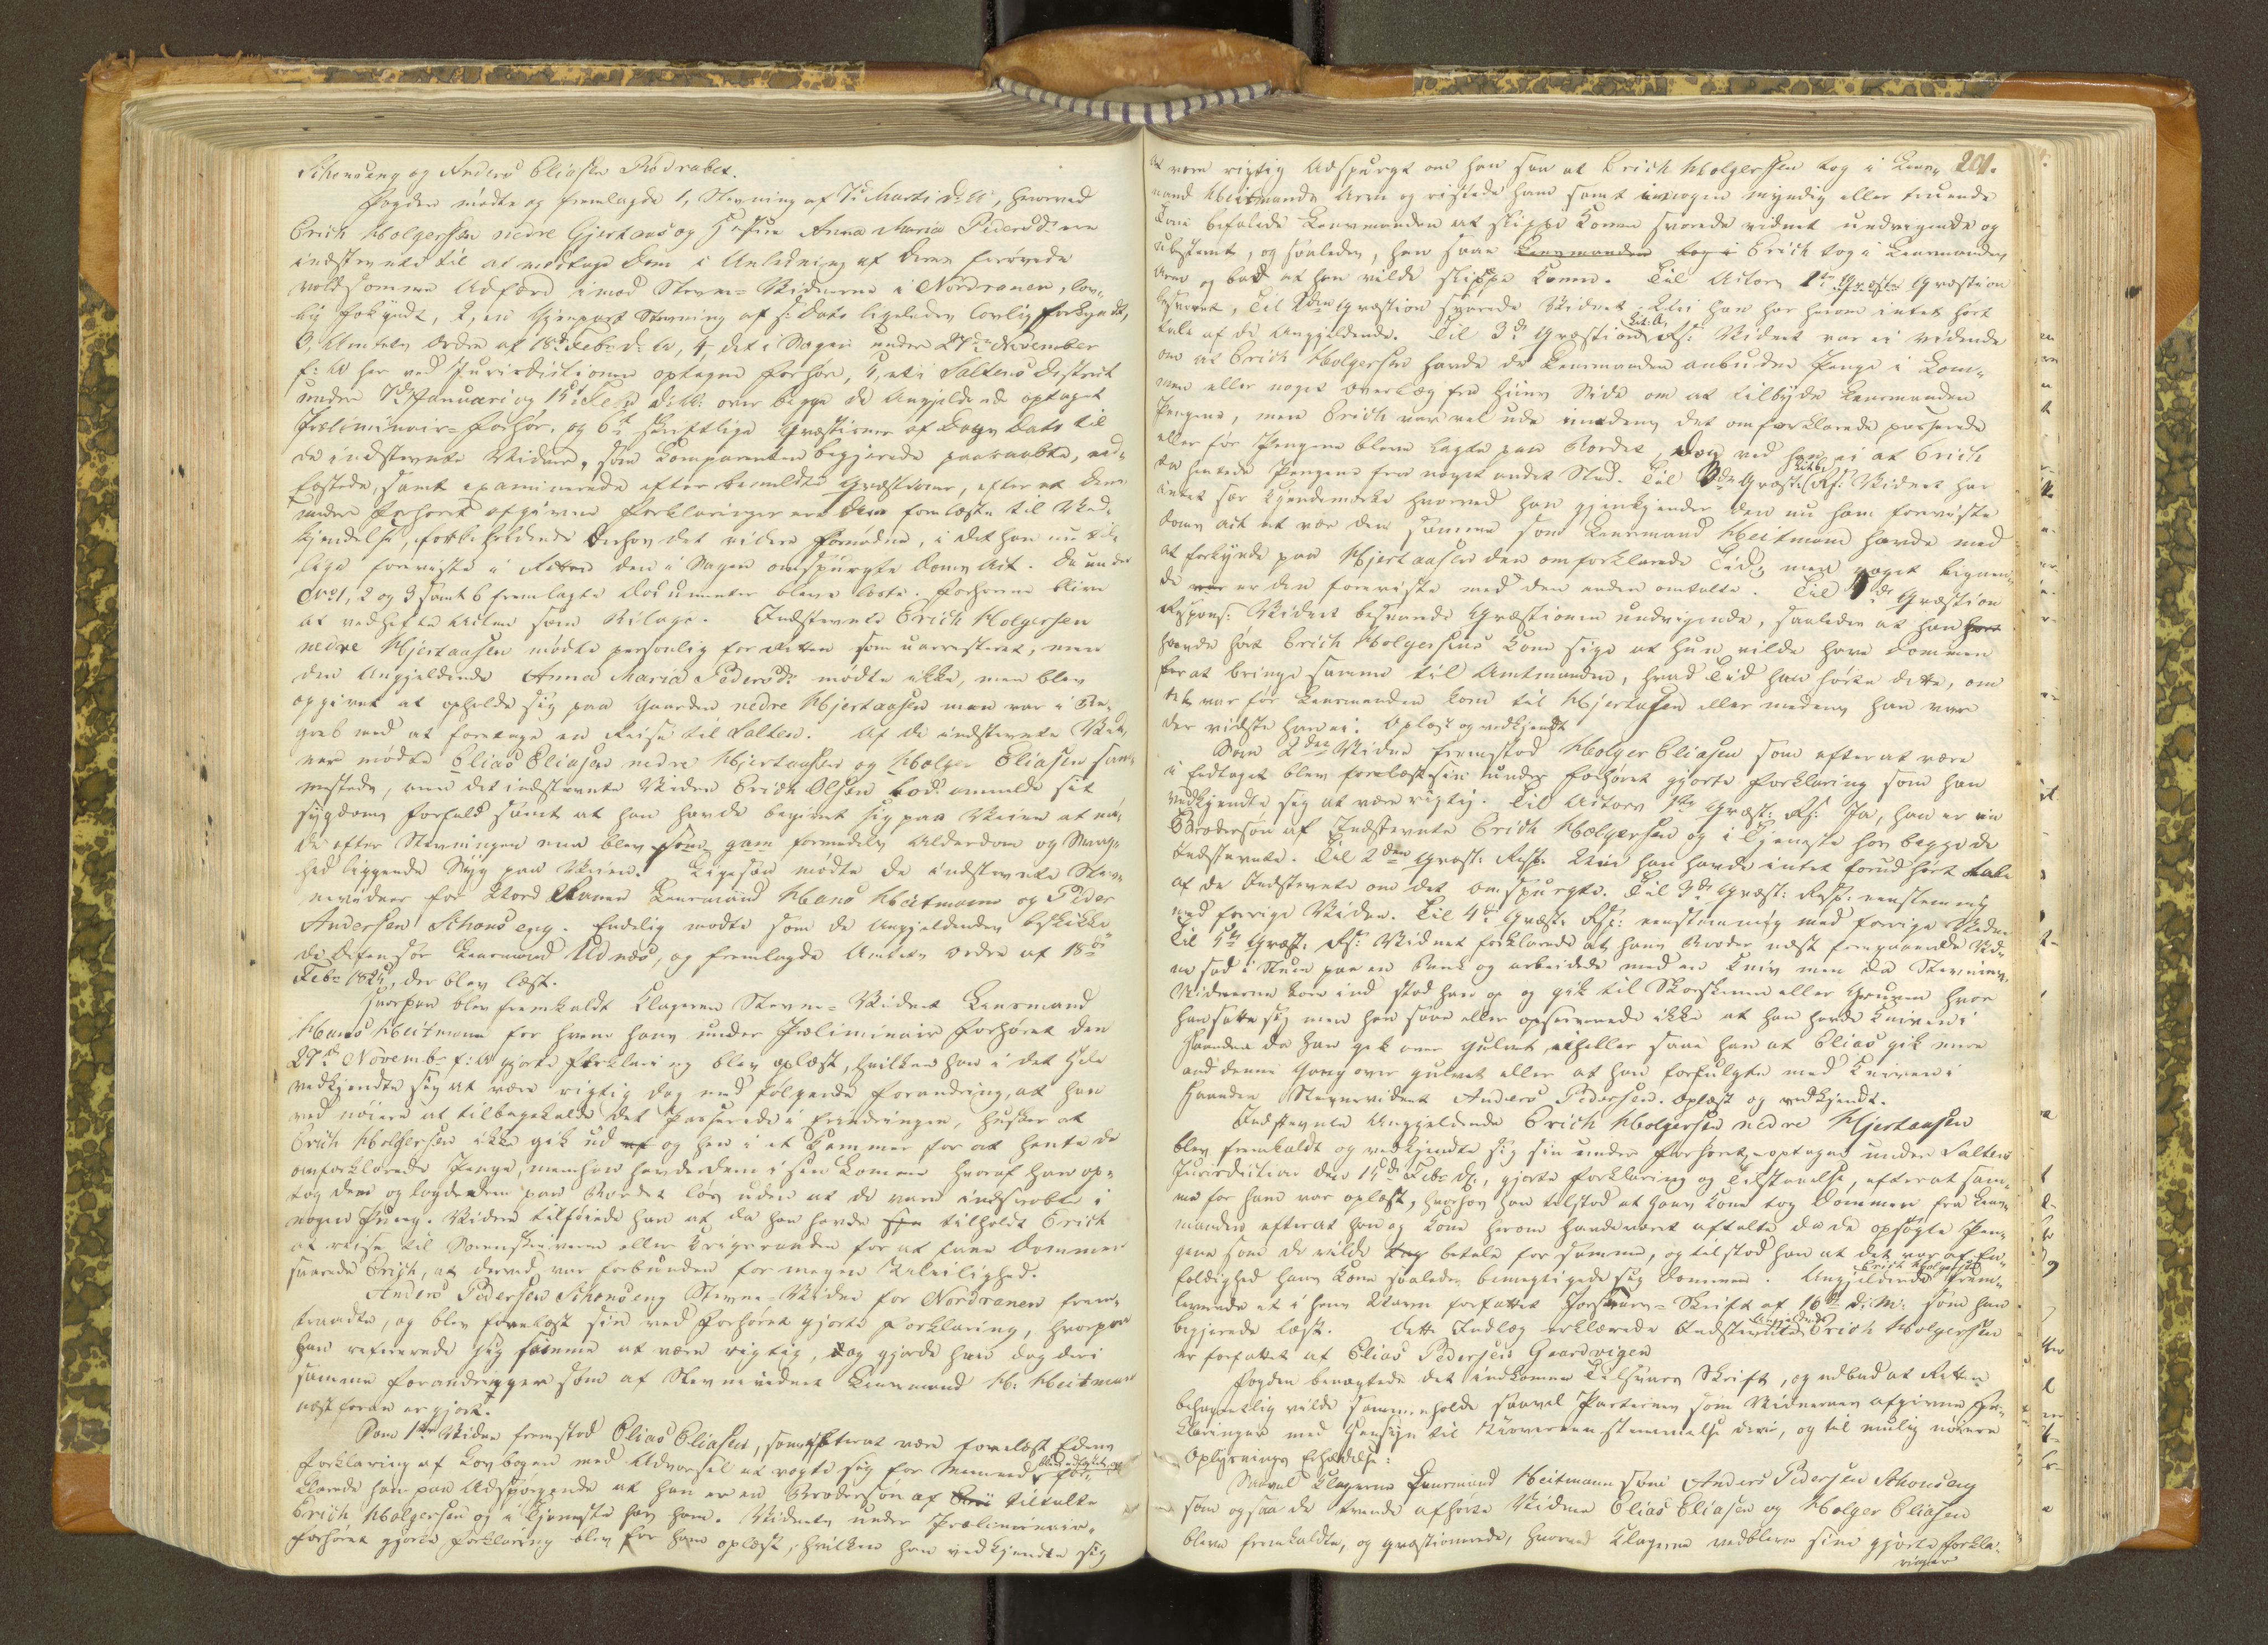 Schonseng og Anders Eliasen Rödrabet.
Fogden mödte og fremlagde 1, Stevning af 7d Marti d: A:, hvorved
Erich Holgersen nedre Hjertaas og Hustrue Anna Maria Pedersd: ere
indstevnte til at modtage Dom i Anledning af deres forövede
voldsomme Adfærd imod Stevne-Vidnerne i Nordranen, lov-
lig fokyndt, 2, en Gjenpart Stevning af s: Dato ligeledes lovlig forkyndt,
3, Amtets Ordre af 18d Febr d: A, 4, det i Sagen under 27de November
f: A her ved Jurisdictionen optagne Forhör, 5, et i Saltens District
under 7d Januari og 15d Febr d: A: over begge de Angjeldende optaget
Præliminair-Forhör, og 6te skriftlige Qvæstioner af Dags Dato til
de indstevnte Vidner, som Comparenten begjærede paaraabte, eed-
fæstede, samt examinerede efter bemeldte Qvæstioner, efter at deres
under Forhöret afgivne Forklaringer ere dem forelæste til Ved-
kjendelse, forbeholdende derhos det videre fornödne, i det han nu til-
lige foreviste i Retten den i Sagen omspurgte Doms Act. De under
No 1, 2 og 3 samt 6 fremlagte Documenter bleve læste. Forhörene blive
at vedhefte Acten som Bilage. Indstevnte Erich Holgersen
nedre Hjertaasen mödte personlig for Retten som uarresteret, men
den Angjeldende Anna Maria Pedersd: mödte ikke, men blev
opgivet at opholde sig paa Gaarden nedre Hjertaasen men var i Be-
greb med at foretage en Reise til Salten. Af de indstevnte Vid-
ner mödte Elias Eliasen nedre Hjertaasen og Holger Eliasen sam-
mesteds, men det indstevnte Vidne Erich Olsen lod anmelde sit
Sygdoms Forfald samt at han havde begivet sig paa Veien at mö-
de efter Stevningen men blev som gam formedelst Alderdom og Svag-
hed liggende Syg paa Veien. Ligesaa mödte de indstevnte Stev-
nevidner for Nord Ranen Lensmand Hans Heitmann og Peder
Andersen Schonseng. Endelig mödte som de Angjeldendes beskikke-
de Defensor Lensmand Udnæs, og fremlagde Amtets Ordre af 18de
Febr 1825, der blev læst.
Hvorpaa blev fremkaldt Klageren Stevne-Vidnet Lensmand
Hans Heitmann for hvem hans under Præliminair Forhöret den
27de Novembr f: A gjorte Forklaring blev oplæst, hvilken han i det Hele
vedkjendte sig at være rigtig dog med fölgende Forandring, at han
ved nöiere at tilbagekalde det Passerede i Erindringen, husker at
Erich Holgersen ikke gik ud af og hen i et Kammer for at hente de
omforklarede Penge, men han havde dem i sin Lomme hvoraf han op-
tog dem og lagde dem paa Bordet lös uden at de vare indsvöbte i
nogen Pung. Videre tilföiede han at da han havde sta tilholdt Erich
at reise til Sorenskriveren eller Krigsraaden for at faae Dommen
svarede Erich, at derved var forbunden for megen Uleilighed.
Anders Pedersen Schonseng Stevne-Vidne for Nordranen frem-
traadte, og blev forelæst sin ved Forhöret gjorte Forklaring, hvorpaa
han refererede sig samme at være rigtig, dog gjorde han dog deri
samme Forandringer som af Stevnevidnet Lensmand H: Heitmann
næst foran er gjort.
Som 1ste Vidne fremstod Elias Eliasen, som efterat være forelæst Edens
Forklaring af Lovbogen med Advarsel at vogte sig for Meened blev edfæstet, og for-
klarede han paa Adspörgende at han er en Brodersön af Eri tiltalte
Erich Holgersen og i Tjeneste hos ham. Vidnets under Præliminair-
Forhöret gjorte Forklaring blev for ham oplæst, hvilken han vedkjendte sig
201.
at være rigtig Adspurgt om han saa at Erich Holgersen tog i Lens-
mand Heitmands Arm og ristede ham samt i nogen myndig eller truende
Tone befalede Lensmanden at slippe Konen svarede vidnet undvigende og
ubestemt, og saaledes, han saae Lensmanden tog i Erich tog i Lensmandens
Arm og bad at han vilde slippe Konen. Til Actors 1te Qvæsti Qvæstion
besvaret, Til 2den Qvæstion svarede Vidnet: Nei han har herom intet hört
tale af de Angjeldende. Til 3de Qvæstion Lit: A, Rs: Vidnet var ei vidende
om at Erich Holgersen havde de Lensmanden anbudne Penge i Lom-
men eller noget Overlæg fra hans Side om at tilbyde Lensmanden
Pengene, men Erich var vel ude imedens det omforklarede passerede
eller för Pengene bleve lagte paa Bordet, dog ved han ei at Erich
da hentede Pengene fra noget andet Sted. Til 3de Qvæst: Lit: b, Rs: Vidnet har
intet sær Kjendemærke hvorved han gjenkjender den nu ham foreviste
Doms Act at være den samme som Lensmand Heitmann havde med
at forkynde paa Hjertaasen den omforklarede Tid, men noget lignen-
de var er den foreviste med den anden omtalte. Til 4de Qvæstion
Respons: Vidnet besvarede Qvæstionen undvigende, saaledes at han hort
havde hört Erich Holgersens Kone sige at hun vilde have Dommen
for at bringe samme til Amtmanden, hvad Tid han hörte dette, om
det var för Lensmanden kom til Hjertaasen eller medens han var
der vidste han ei. Oplæst og vedkjendt
Som 2den Vidne fremstod Holger Eliasen som efter at være
i Eedtaget blev forelæst sin under Forhöret gjorte Forklaring som han
vedkjendte sig at være rigtig. Til Actors 1te Qvæst: Rs: Ja, han er en
Brodersön af Indstevnte Erich Holgersen og i Tjeneste hos begge de
Indstevnte. Til 2den Qvæst: Resp: Nei han havde intet forud hört tale
af de Indstevnte om det omspurgte. Til 3de Qvæst: Resp: eenstemmig
med forrige Vidne. Til 4de Qvæst: Rsp: eenstemmig med forrige Vidne.
Til 5te Qvæst: Rs: Vidnet forklarede at hans Broder næst foregaaende Vid-
ne sad i Stuen paa en Bænk og arbeidede med en Kniv men da Stevnings
Vidnerne kom ind stod han op og gik til Skorstenen eller Gruven hvor
han satte sig men han saae eller observerede ikke at han havde Kniven i
Haanden da han gik over Gulvet, ei heller saae han at Elias gik mere
end denne Gang over Gulvet eller at han forfulgte med Kniven i
Haanden Stevnevidnet Anders Pedersen. Oplæst og vedkjendt.
Indstevnte Angjeldende Erich Holgersen nedre Hjertaasen
blev fremkaldt og vedkjendte sig sin under Forhöret optaget under Saltens
Jurisdiction den 15de Febr d: A:, gjorte Forklaring og Tilstaaelse, efterat sam-
me for ham var oplæst, hvorhos han tilstod at hans Kone tog Dommen fra Lens-
manden efterat han og Kone herom havde været aftalte da de opsögte Pen-
gene som de vilde tag betale for samme, og tilstod han at det var af En-
foldighed hans Kone saaledes bemægtigede sig Dommen. Angjeldende Erich Holgersen frem-
leverede et i hans Navn forfattet Forsvars-Skrift af 16de d: M: som han
begjerede læst. Dette Indlæg erklærede Indstevnte Angjeldende Erich Holgersen
er forfattet af Elias Pedersen Gaardvigen
Fogden benægtede det indkomne Tilsvars Skrift, og udbad at Retten
behageligst vilde sammenholde saavel Parternes som Vidnernes afgivne For-
klaringer med Hensyn til Uoverensstemmelse deri, og til mulig nöiere
Oplysnings Erholdelse:
Saavel Klagerne Lensmand Heitmann som Anders Pedersen Schonseng
som ogsaa de tvende afhörte Vidner Elias Eliasen og Holger Eliasen
bleve fremkaldte, og qvæstionerede, hvorved Klagerne vedbleve sine gjorte Forkla-
ringer